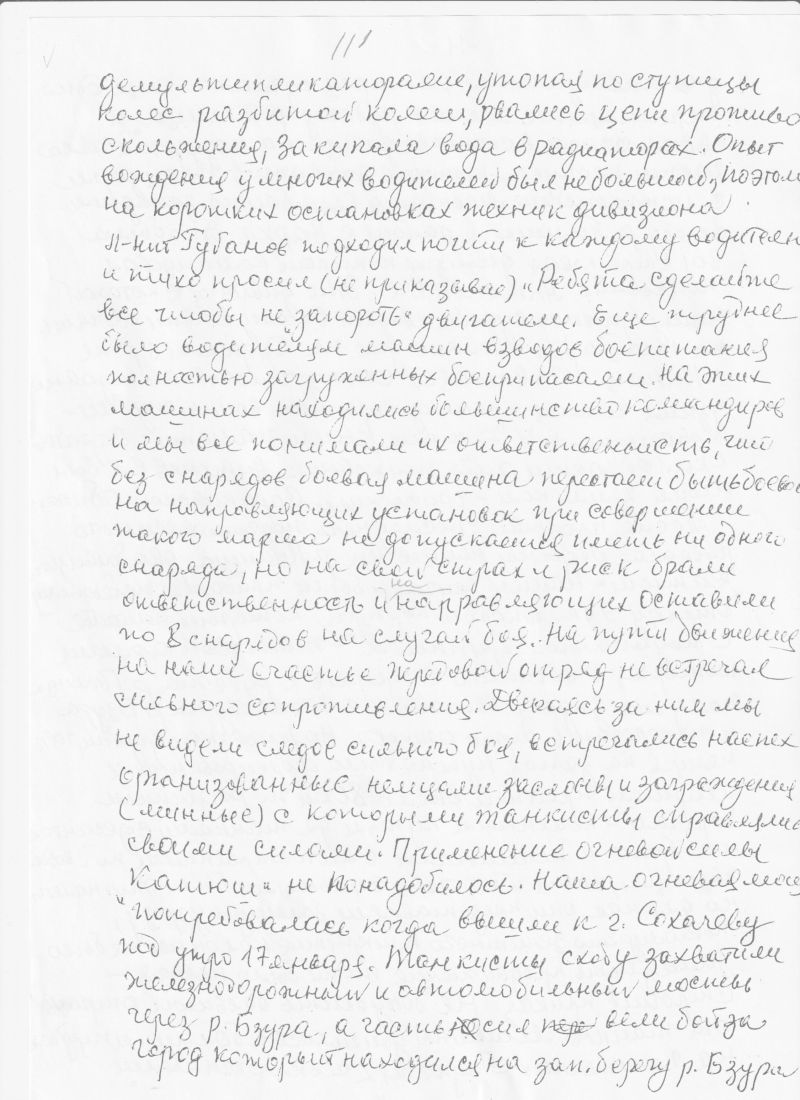 111
демультипликаторами, утопая по ступицы
колес разбитой колеи, рвались цепи противо
скольжения, закипала вода в радиаторах. Опыт
вождения у многих водителей был небольшой, поэтом
на коротких остановках техник дивизиона
л-нит Губанов подходил почти к каждому водителю
и тихо просил (не приказывая) „Ребята сделайте
все чтобы не запороть" двигатели. Еще труднее
было водителям машин взводов боепитания
полностью загруженных боеприпасами. На этих
машинах находились большинство командиров
и мы все понимали их ответственность, что
без снарядов боевая машина перестает быть боевой
на направляющих установок при совершении
такого марша не допускается иметь ни одного
снаряда, но на свой страх и риск брали
ответственность и на направляющих оставили
по 8 снарядов на случай боя. На пути движения
на наше счастье передовой отряд не встречал
сильного сопротивления. Двигаясь за ним мы
не видели следов сильного боя, встречались наспех
организованные немцами заслоны и заграждения
(минные) с которыми танкисты справлялис
своими силами. Применение огневой силы
"Катюш" не понадобилось. Наша огневая мощ
потребовалась когда вышли к г. Сохачеву
под утро 17 января. Танкисты сходу захватили
железнодорожный и автомобильный мосты
через р. Бзура, а часть сил вели бой за
город который находился на зап. берегу р. Бзура